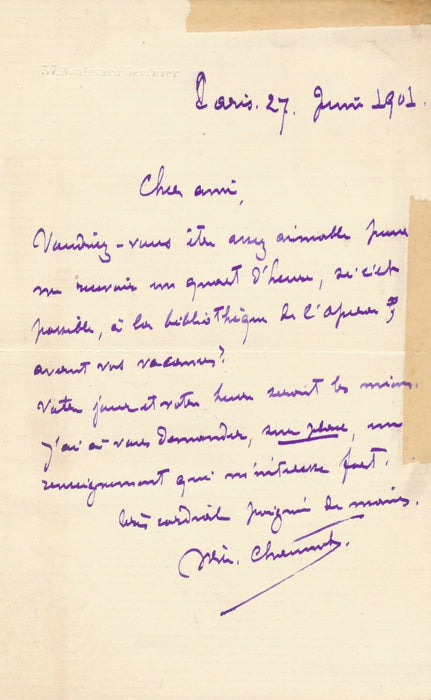 37, Boulevard
Paris. 27. Juin 1901.
Cher ami,
Voudriez-vous être assez aimable pour
me recevoir un quart d'heure, si c'est
possible, à la bibliothèque de l'Opéra
avant vos vacances?
Votre jour et votre heure seront les miens.
J'ai à vous demander, sur place, un
renseignement qui m'intéresse fort.
Très cordiale poignée de mains.